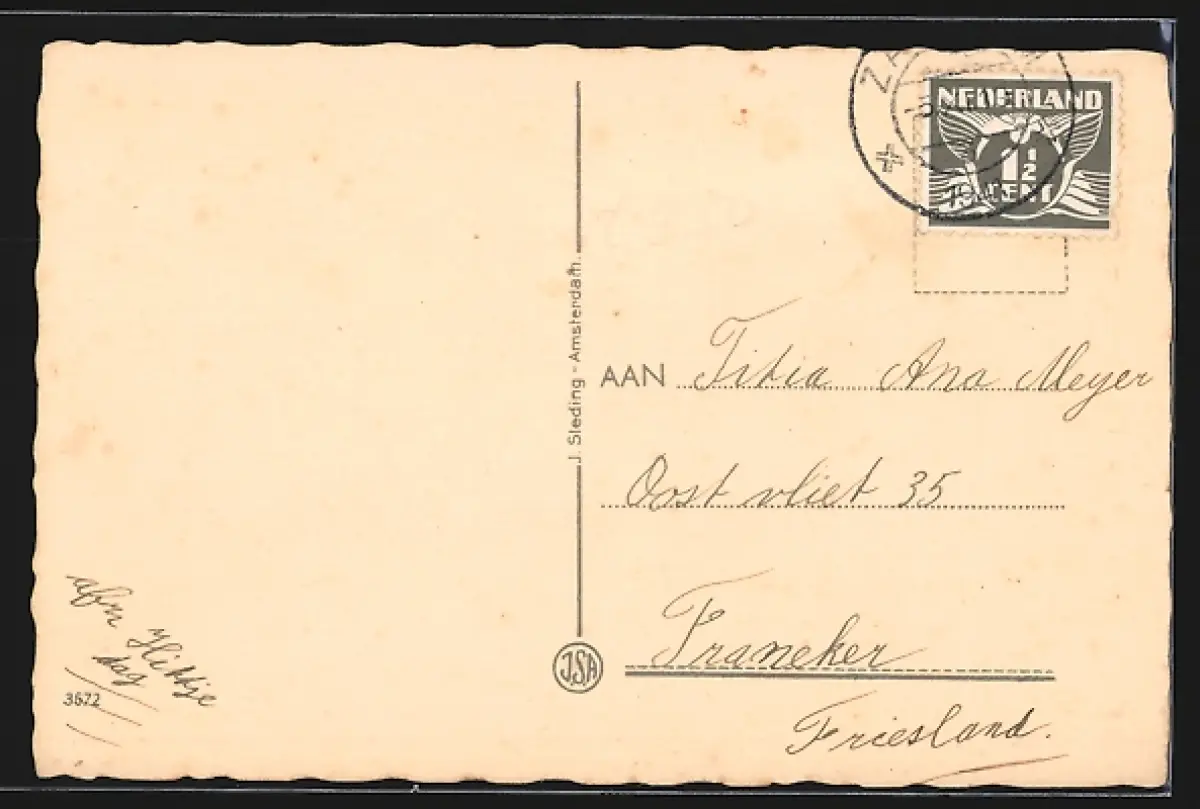 NEDERLAND
1½
CENT
J. Sleding - Amsterdam.
AAN Titia Ana Meyer
Oostvliet 35
Franeker
Friesland.
afm Hittje
dag
3672
JSA